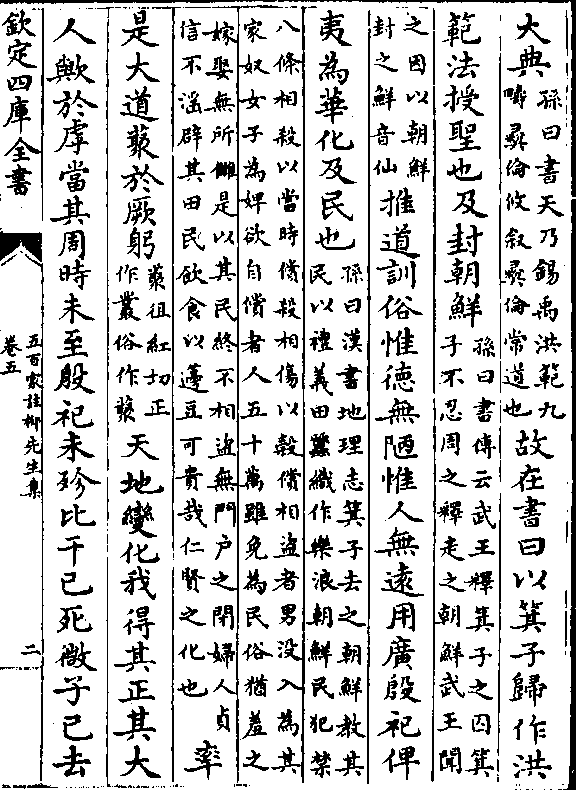 大典
孫曰書天乃錫禹洪範九
疇彝倫攸叙彝倫常道也
故在書曰以箕子歸作洪
範法授聖也及封朝鮮
孫曰書傳云武王釋箕子之囚箕
子不忍周之釋走之朝鮮武王聞
之因以朝鮮
封之鮮音仙
推道訓俗惟德無陋惟人無遠用廣殷祀俾
夷為華化及民也
孫曰漢書地理志箕子去之朝鮮教其
民以禮義田蠶織作樂浪朝鮮民犯禁
八條相殺以當時償殺相傷以榖償相盗者男没入為其
家奴女子為婢欲自償者人五十萬雖免為民俗猶羞之
嫁娶無所讎是以其民終不相盗無門户之閉婦人貞
信不滛辟其田民飲食以籩豆可貴哉仁賢之化也
率
是大道藂於厥躬
藂徂紅切正
作叢俗作藂
天地變化我得其正其大
人歟於虖當其周時未至殷祀未殄比干已死微子已去
欽定四庫全書
五百家註柳先生集
卷五
二